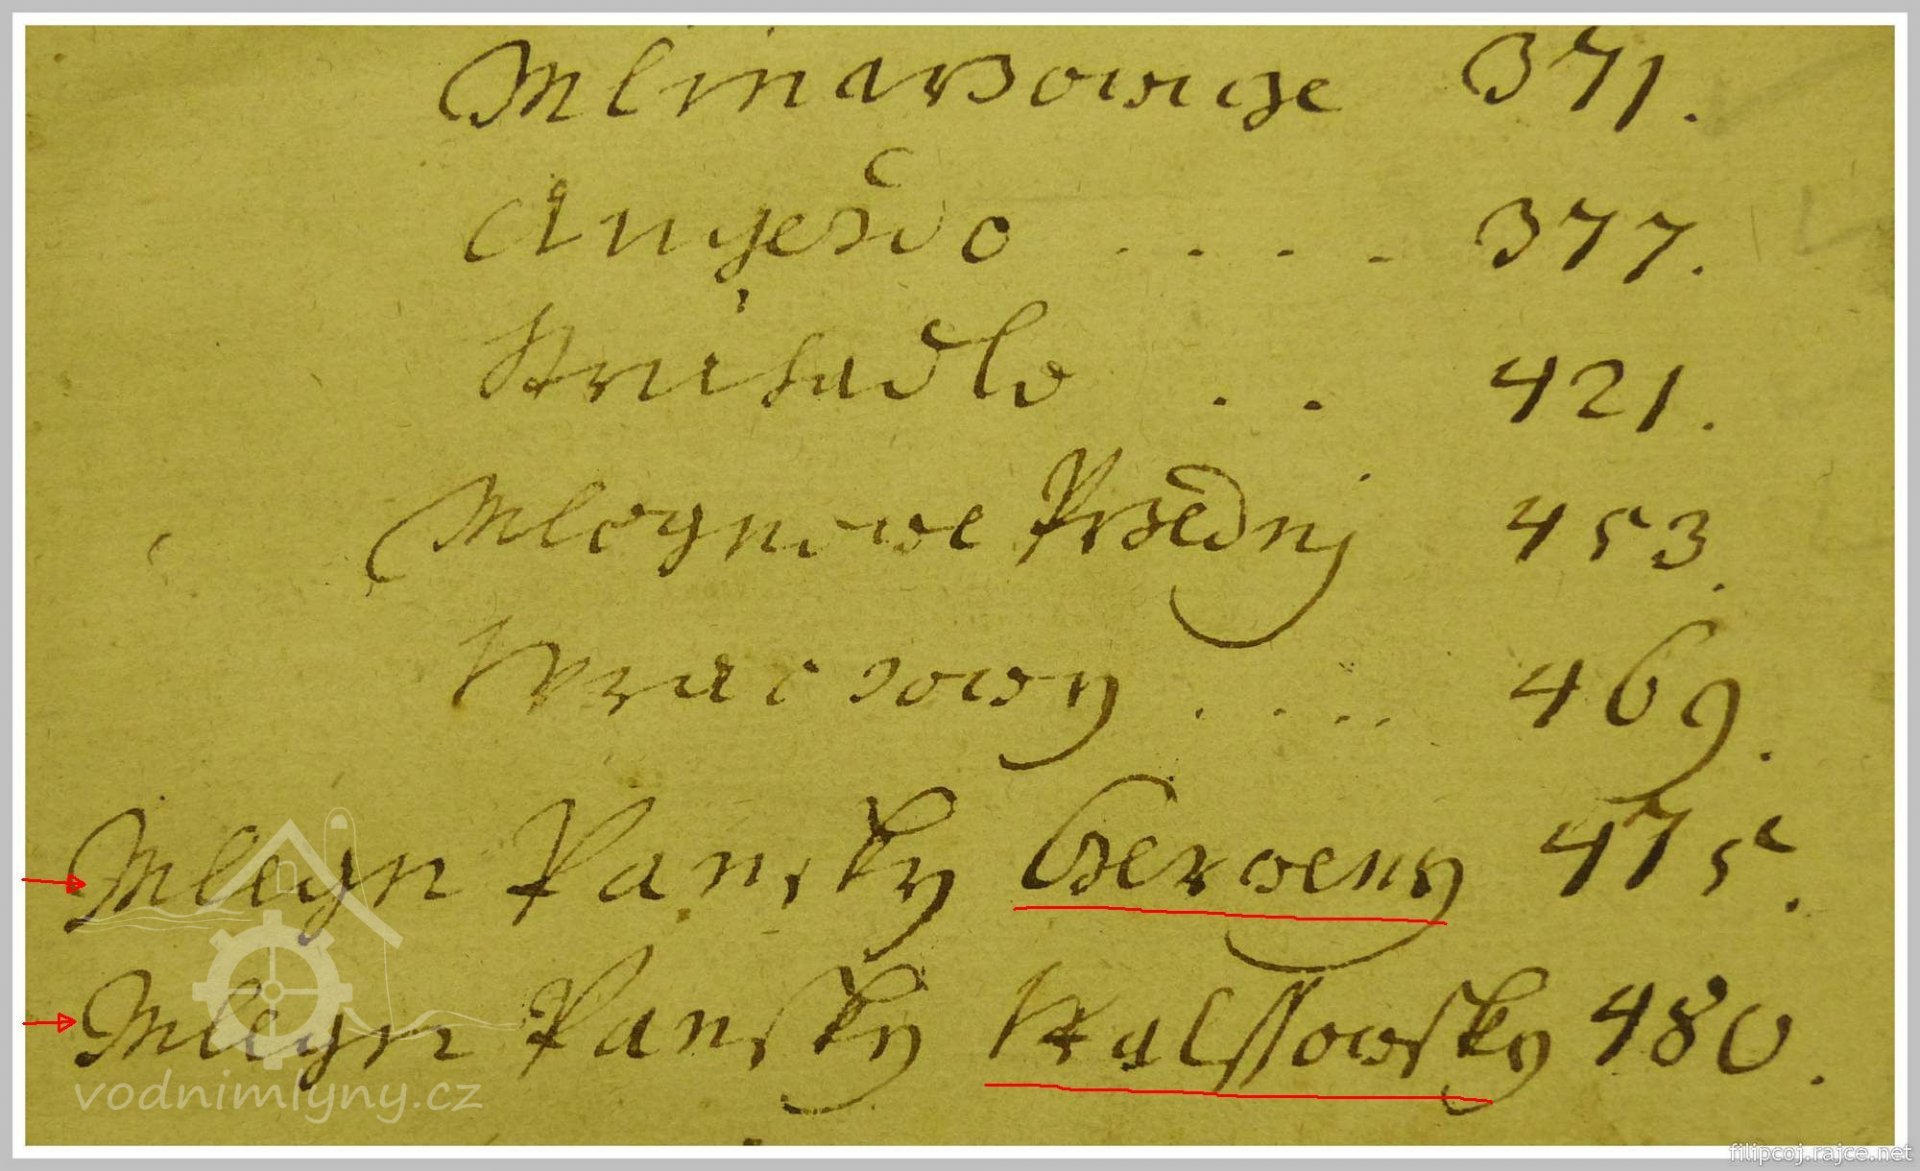 Mlinarzowicze 371.
Augezdo . . . . 377.
Strusadlo . . 421.
Mlegnowe Przednj 453.
469.
Mlegn Pansky Czerweny 475.
Mlegn Pansky Walssowsky 480.
vodnimlyny.cz
filipcoj.rajce.net